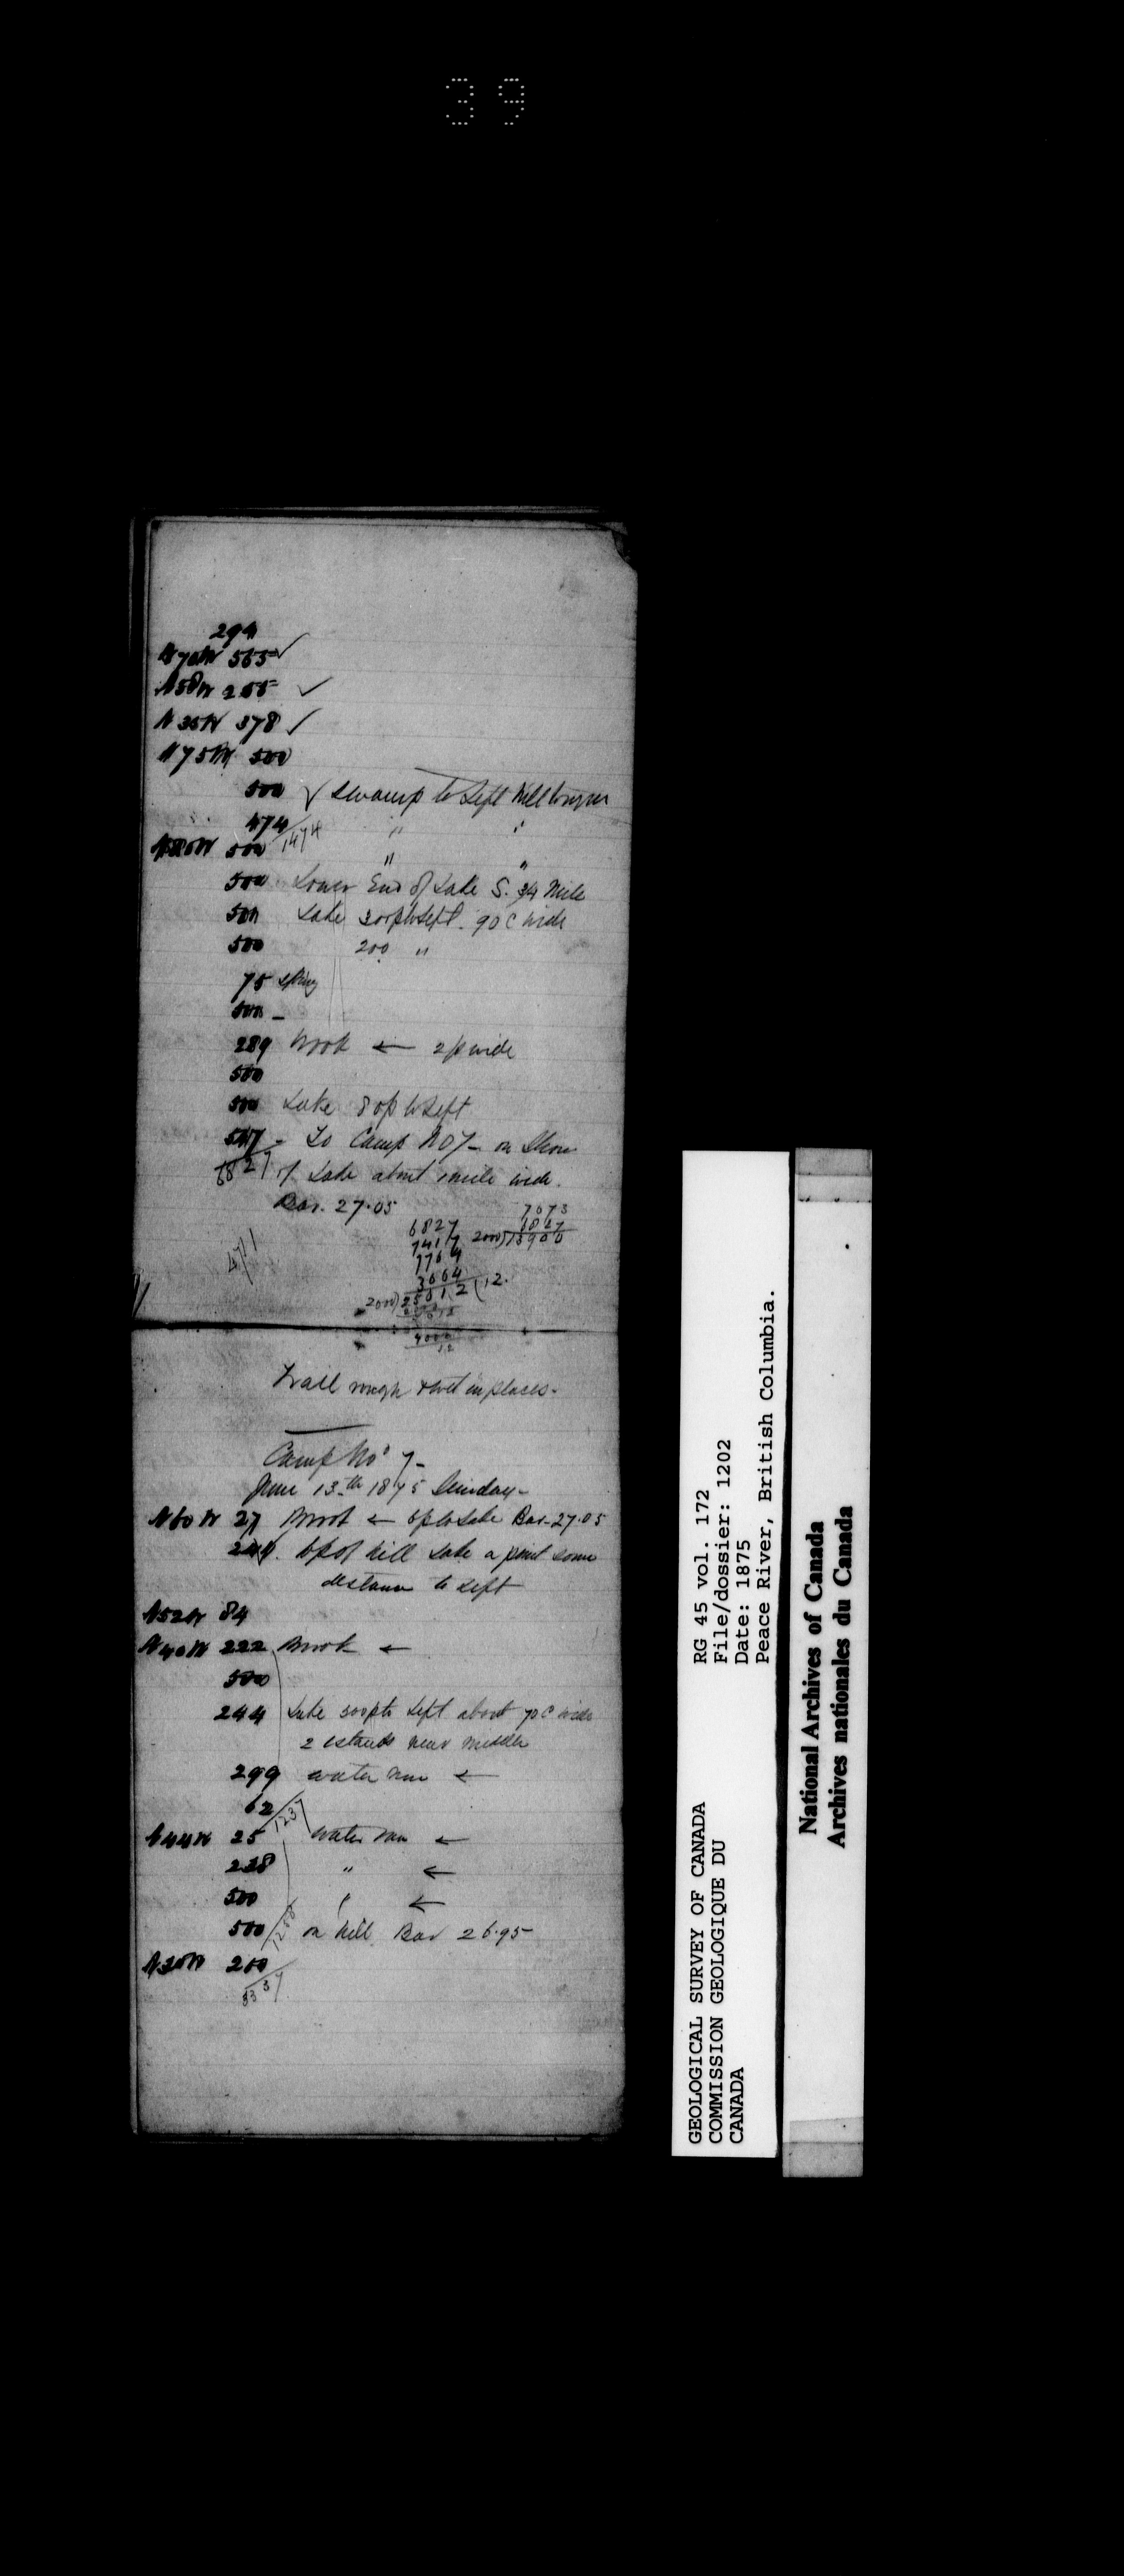 39
294
N70W 565 ✓
N58W 255 ✓
N35W 378 ✓
N75W 500
500 ✓ Swamp to left hill to
474 " "
1474
500 " "
500 Lower End of Lake S. 3/4 Mile
500 Lake 300p to left. 90 C wide
500 200 "
75 spring
500 -
289 brook ← 2p wide
500
500 Lake 80p to left
547 - To Camp No 7 - on Shore
6827 of Lake about 1 mile wide.
Bar. 27.05
7073
6827
2000)13900
6827
7417
7704
3064
2000)25012(12.
Trail rough & wet in places.
Camp No 7 -
June 13th 1875 Sunday -
N60W 27 Brook ← 6p to Lake Bar - 27.05
244. top of hill Lake a point some
distance to left
N52W 84
N40W 222 Brook ←
500
244 Lake 300p to left about 70 C wide
2 islands near middle
299 water run ←
62
1237
N44W 25 water run ←
238 " ←
500 " ←
500 on hill Bar 26.95
N30W 200
GEOLOGICAL SURVEY OF CANADA
COMMISSION GEOLOGIQUE DU
CANADA
RG 45 vol. 172
File/dossier: 1202
Date: 1875
Peace River, British Columbia.
National Archives of Canada
Archives nationales du Canada